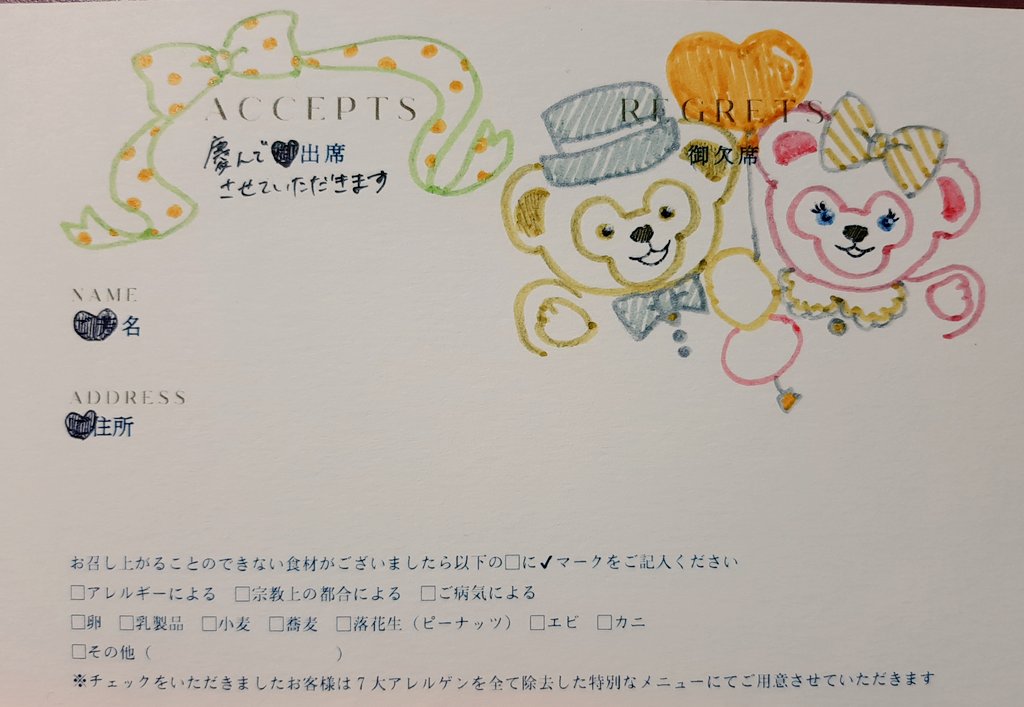 ACCEPTS
慶んで出席
させていただきます
REGRETS
御欠席
NAME
名
ADDRESS
住所
お召し上がることのできない食材がございましたら以下の□に✓マークをご記入ください
□アレルギーによる □宗教上の都合による □ご病気による
□卵 □乳製品 □小麦 □蕎麦 □落花生（ピーナッツ） □エビ □カニ
□その他（ ）
※チェックをいただきましたお客様は7大アレルゲンを全て除去した特別なメニューにてご用意させていただきます